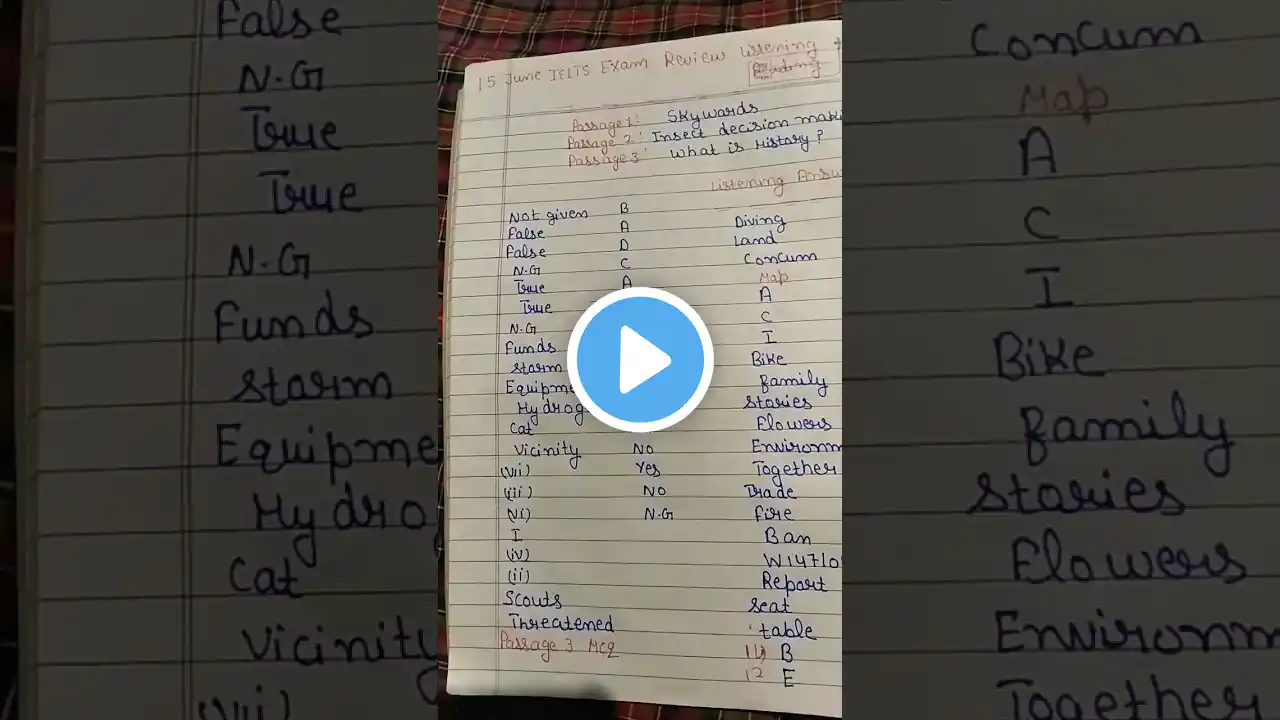 15 June IELTS Exam Review Listening
Reading
Passage 1: Skywards
Passage 2: Insect decision maki
Passage 3: What is History?
Listening Answ
Not given B
False A Diving
False D Land
N.G C Concum
True A Map
True A
N.G C
Funds I
Storm Bike
Equipme family
Hydrog Stories
Cat Flowers
Vicinity NO Environm
(vii) Yes Together
(iii) NO Trade
(vi) N.G fire
I Ban
(iv) W14710
(ii) Report
Scouts seat
Threatened table
Passage 3 MCQ 11) B
12 E
False
N.G
True
True
N.G
Funds
Storm
Equipme
Hydro
Cat
Vicinity
(vii)
Concum
Map
A
C
I
Bike
family
Stories
Flowers
Environm
Together